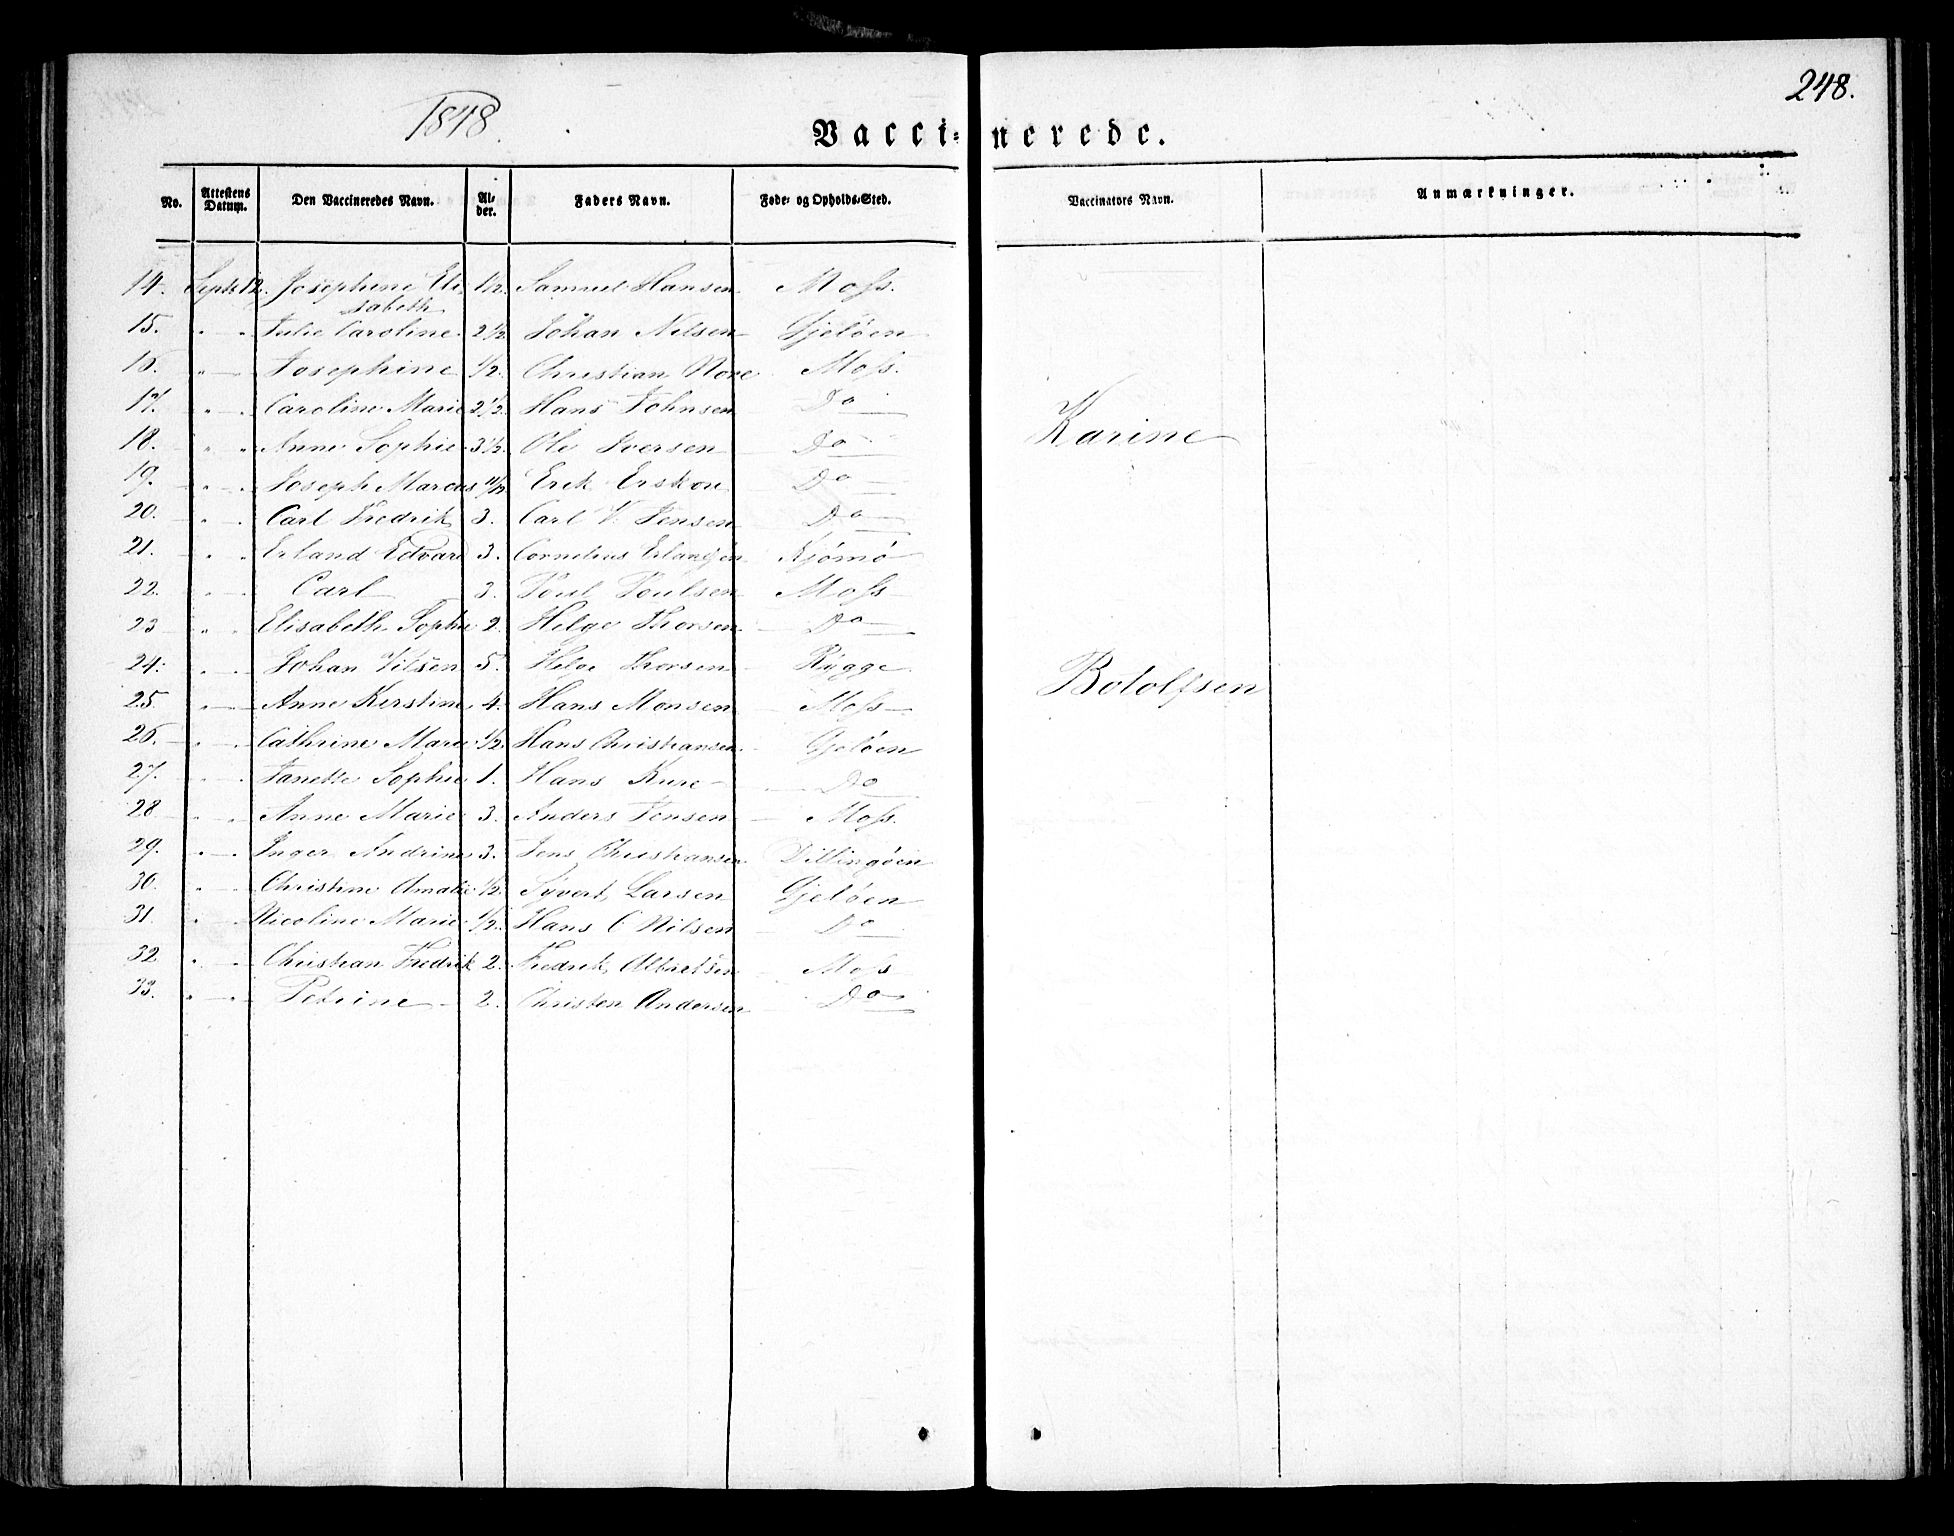 1848
248.
Vacci-nerede.
No. Attestens Datum. Den Vaccineredes Navn. Al-der. Faders Navn. Føde- og Opholds-Sted. Vaccinators Navn. Anmærkninger.
14. Septr 12. Josephine Eli- 1/2. Samuel Hansen Moss.
sabeth
15. " " Julie Caroline 2 1/2 Johan Nilsen Gjelöen
16. " " Josephine 1/2. Christian Nore Moss.
17. " " Caroline Marie 2 1/2. Hans Johnsen Do
18. " " Anne Sophie 3 1/2. Ole Iversen Do
Karine
19. " " Joseph Marcus Erik Erskon Do
20. " " Carl Fredrik 3. Carl V. Jensen Do
21. " " Erland Edvard 3. Cornelius Erlandsen Kjömö
22. " " Carl 3. Poul Poulsen Moss
23 " " Elisabeth Sophie 2. Helge Thorsen Do
24. " " Johan Vilsen 5. Helge Thorsen Rygge
Botolfsen
25. " " Anne Kerstine 4. Hans Monsen Moss
26. " " Cathrine Marie 1/2. Hans Christiansen Gjelöen
27. " " Janette Sophie 1. Hans Kure Do
28 " " Anne Marie 3. Anders Jensen Moss.
29. " " Inger Andrine 3. Jens Christiansen Dillingöen
30. " " Christine Amalie 1/2. Syvert Larsen Gjelöen
31. " " Nicoline Marie 1/2. Hans C Nilsen Do
32. " " Christian Fredrik 2. Fredrik Albretsen Moss
33. " " Petrine 2. Christen Andersen Do